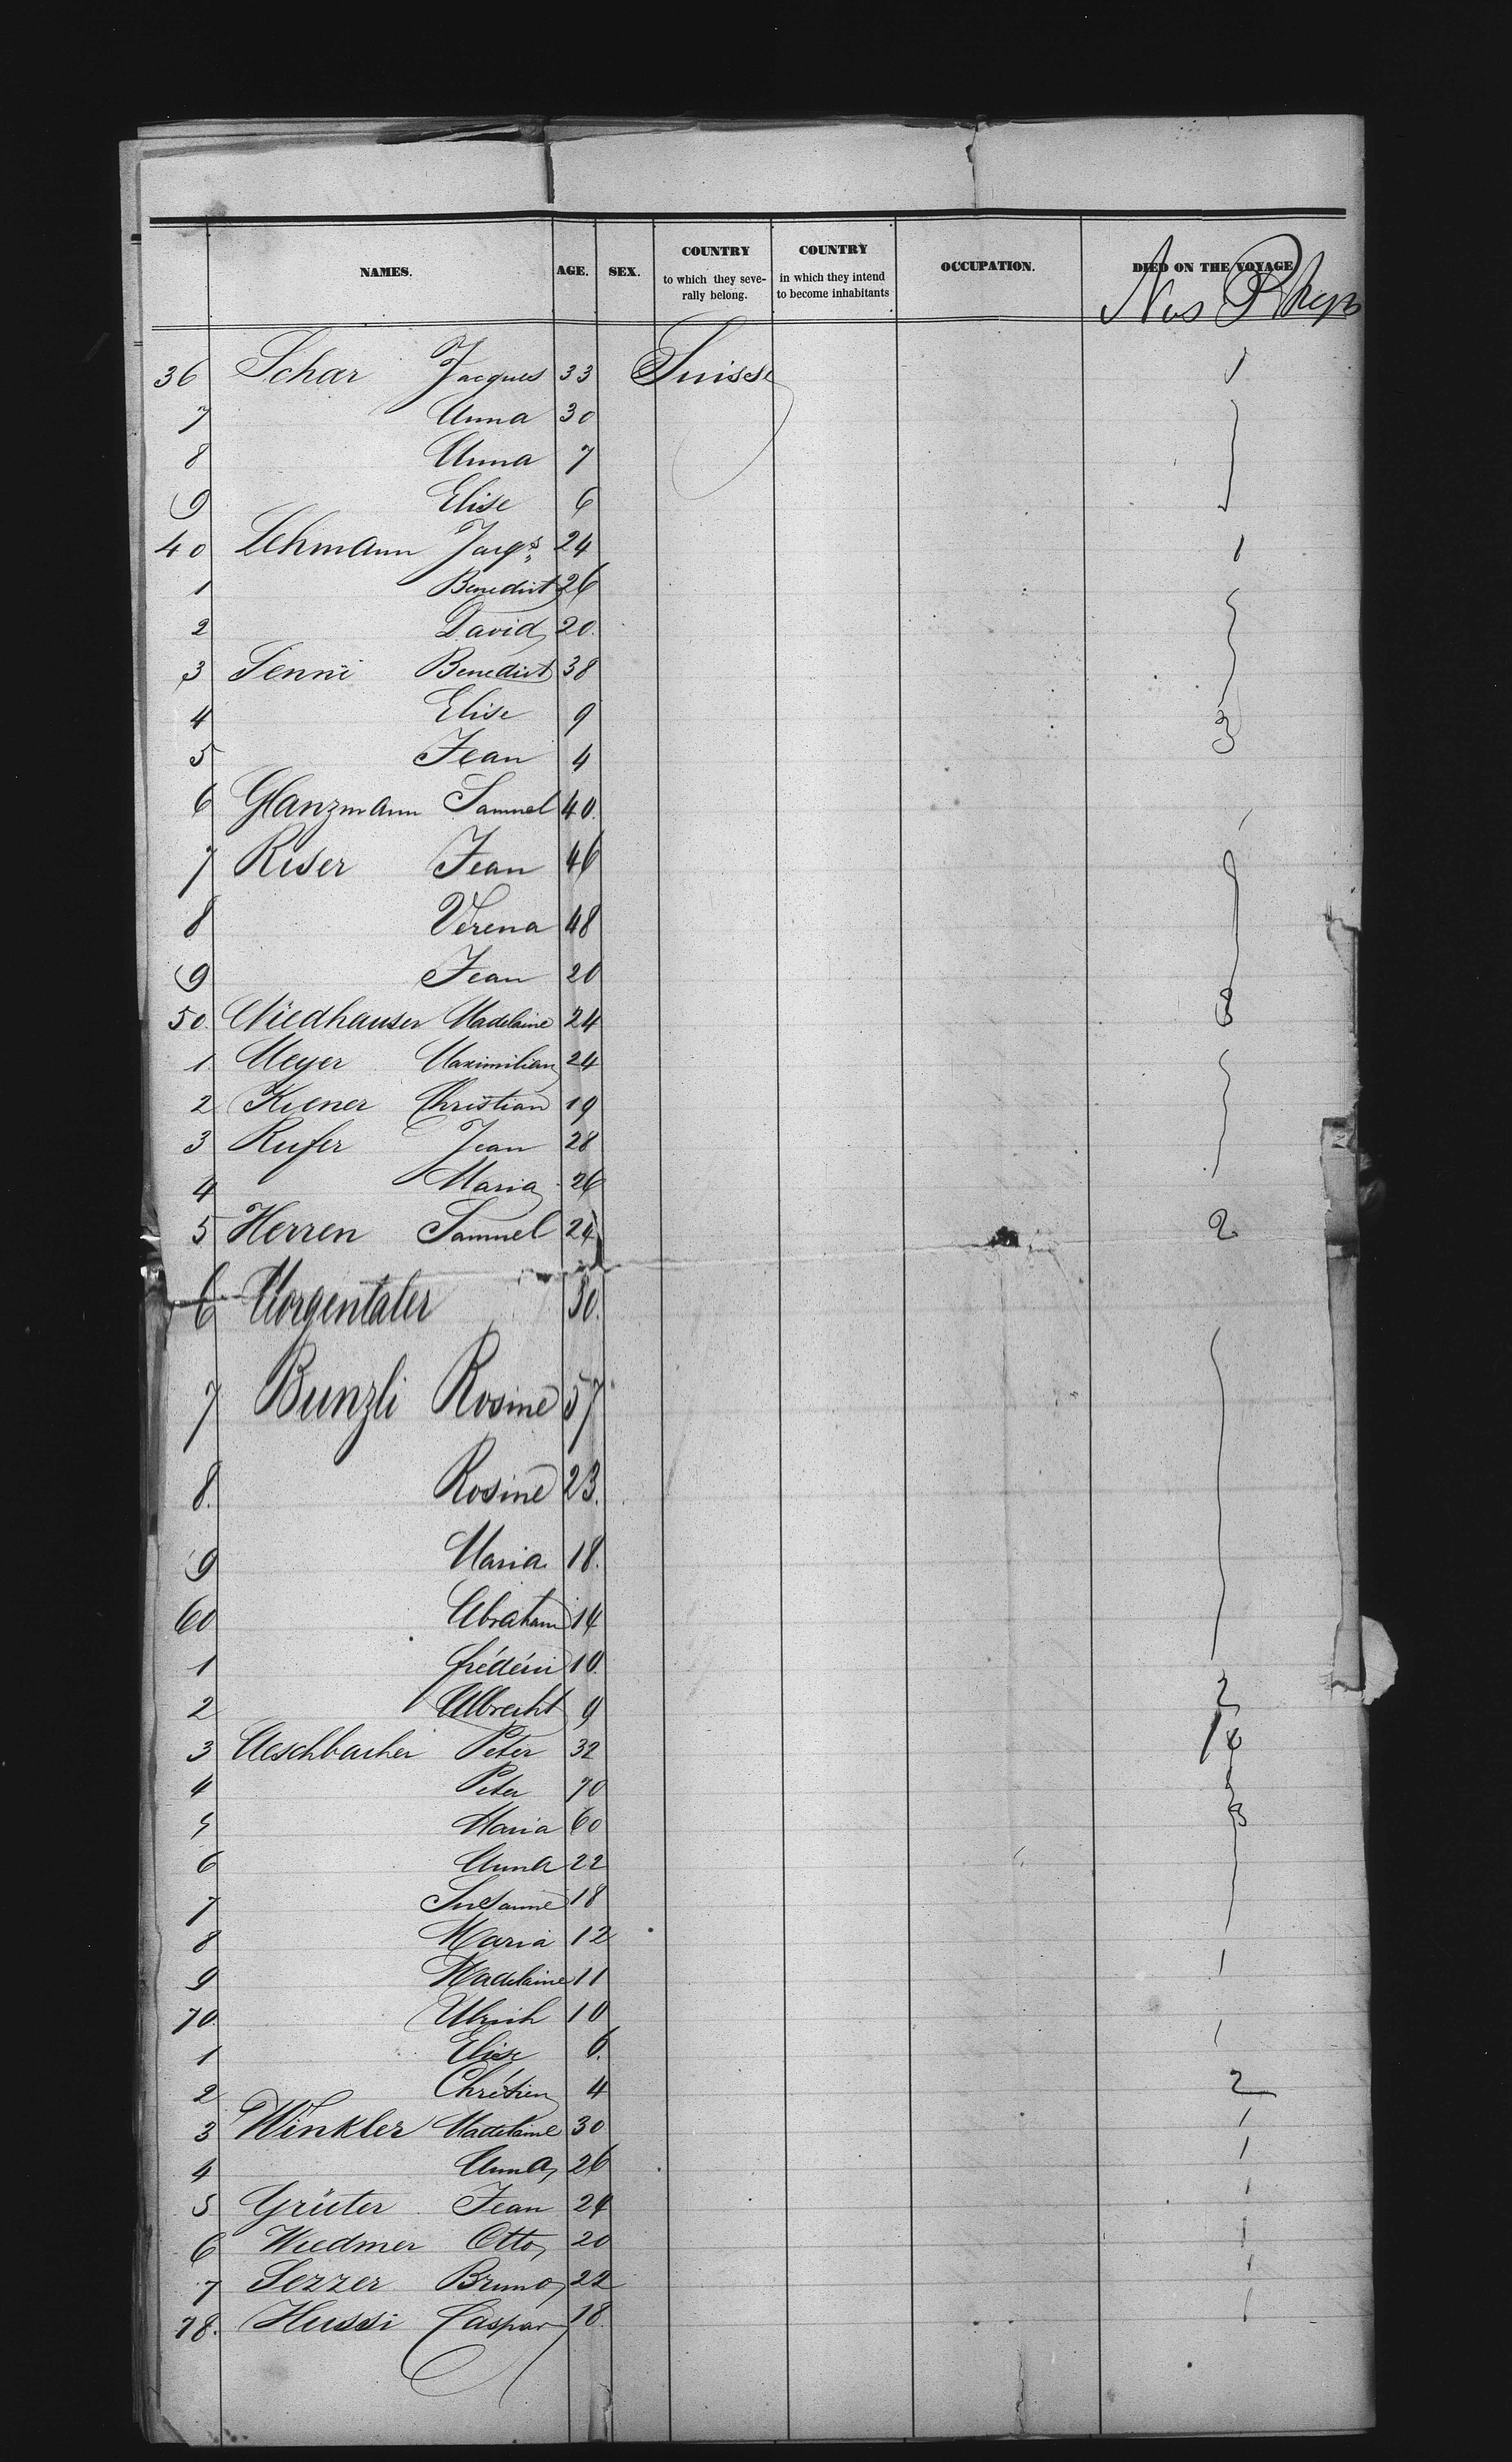 NAMES. AGE. SEX. COUNTRY to which they seve- rally belong. COUNTRY in which they intend to become inhabitants OCCUPATION. DIED ON THE VOYAGE
Nos
36 Schar Jacques 33 Suisse 1
7 Anna 30
8 Anna 7
9 Elise 6
40 Lehmann Jacqs 24 1
1 Benedict 26
2 David 20.
3 Jenni Benedict 38
4 Elise 9 3
5 Jean 4
6 Glanzmann Samuel 40.
7 Riser Jean 46
8 Verena 48
9 Jean 20
50. Niedhauser Madelaine 24
1. Meyer Maximilian 24
2 Kiener Christian 19
3 Rufer Jean 28
4 Maria 26
5 Herren Samuel 24 2
6 Morgentaler 30.
7 Bunzli Rosine 57
8. Rosine 23.
9 Maria 18.
60 Abraham 14
1 frédéric 10.
2 Albrecht 9 2
3 Aeschbacher Peter 32
4 Peter 70
5 Maria 60
6 Anna 22
7 Susanne 18
8 Maria 12
9 Madelaine 11 1
70. Ulrich 10
1 Elise 6. 1
2 Chrétien 4 2
3 Winkler Madelaine 30 1
4 Anna 26 1
5 Grüter Jean 24 1
6 Wiedmer Otto 20 1
7 Sezzer Bruno 22 1
78. Hussi Caspar 18. 1